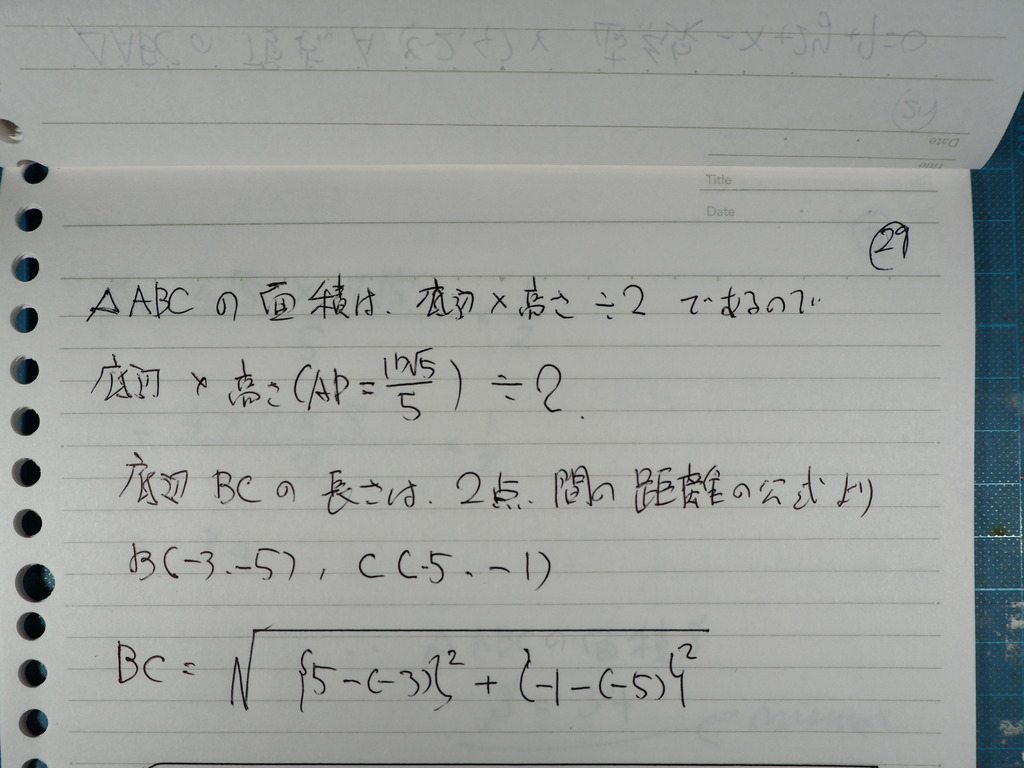 Title
Date
29
△ABCの面積は、底辺×高さ÷2 であるので
底辺 × 高さ(AP = 11√5/5) ÷ 2.
底辺 BC の 長さは、2点、間の 距離の公式より
B(-3, -5), C(-5, -1)
BC = √{5-(-3)}² + {-1-(-5)}²